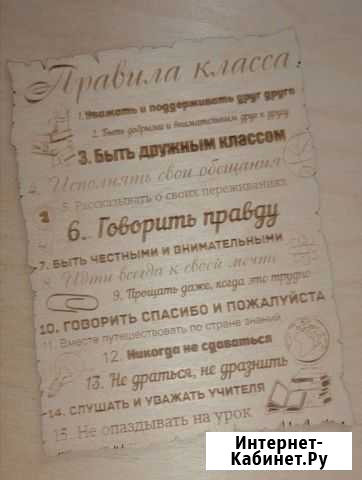 Правила класса
1. Уважать и поддерживать друг друга
2. Быть добрыми и внимательными друг к другу
3. Быть дружным классом
4. Исполнять свои обещания
5. Рассказывать о своих переживаниях
6. Говорить правду
7. Быть честными и внимательными
8. Идти всегда к своей мечте
9. Прощать даже, когда это трудно
10. Говорить спасибо и пожалуйста
11. Вместе путешествовать по стране знаний
12. Никогда не сдаваться
13. Не драться, не дразнить
14. Слушать и уважать учителя
15. Не опаздывать на урок
Интернет-
Кабинет.Ру